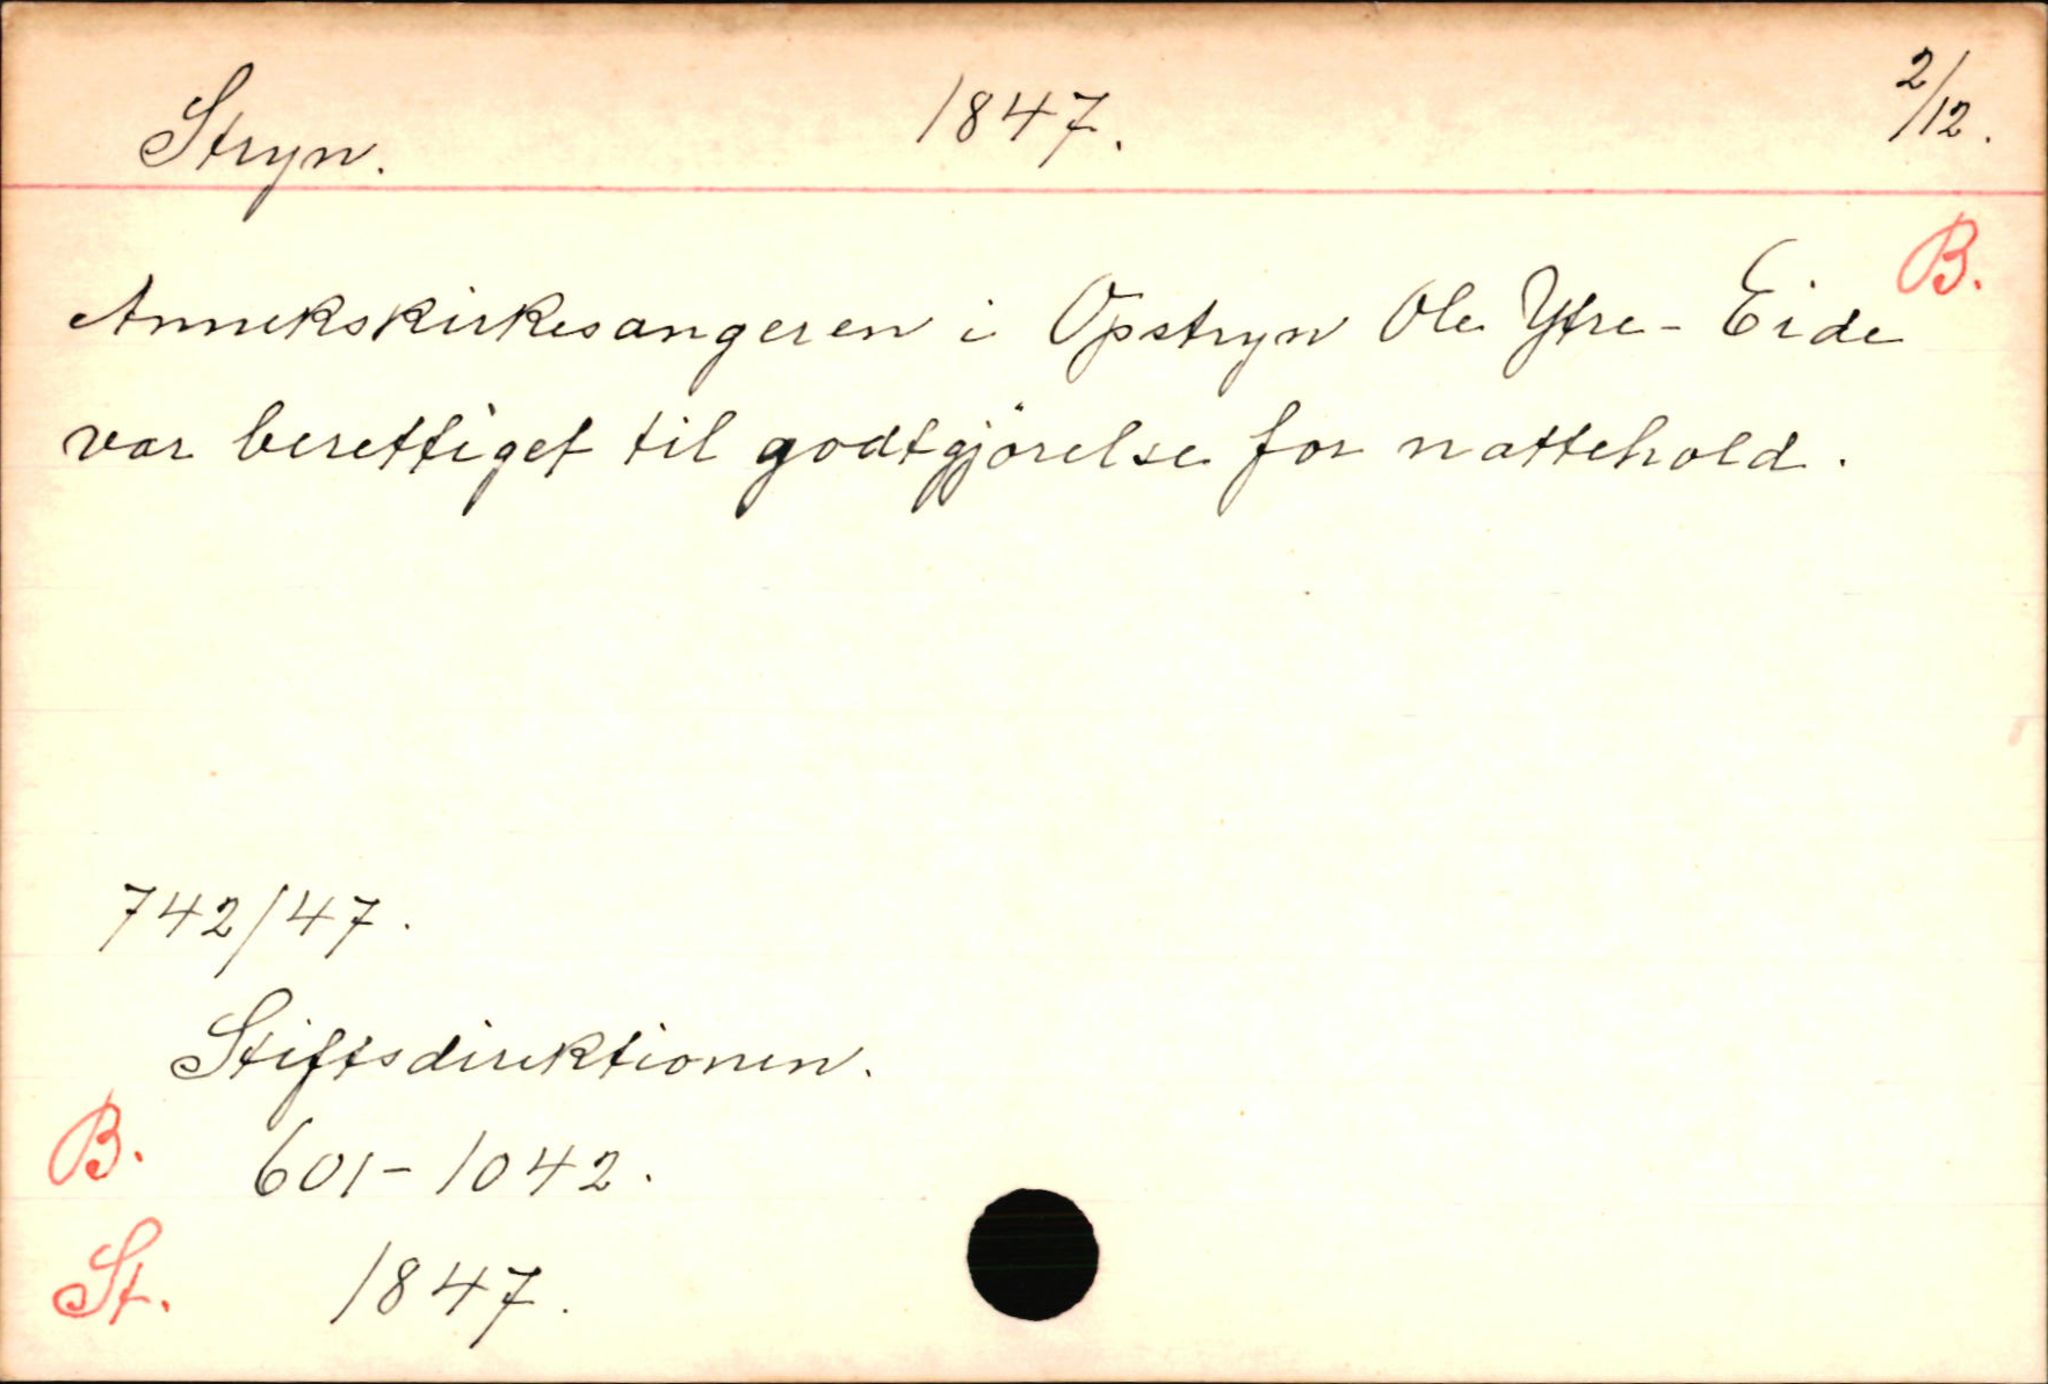 Stryn. 1847. 2/12.
B.
Annekskirkesangeren i Opstryn Ole Ytre-Eide
var berettiget til godtgjörelse for nattehold.
742/47.
Stiftsdirektionen.
B. 601-1042.
St. 1847.